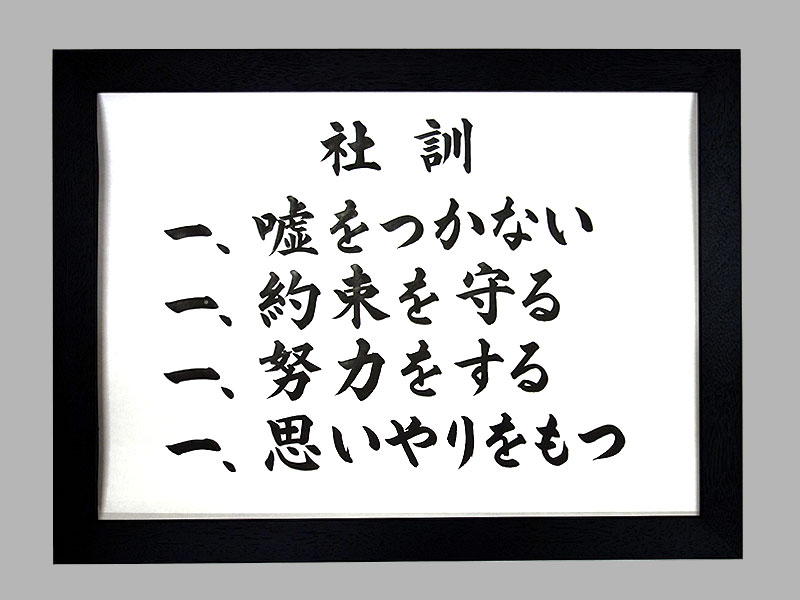 社訓
一、嘘をつかない
一、約束を守る
一、努力をする
一、思いやりをもつ